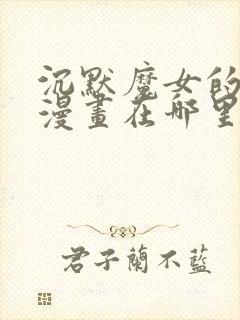 沉默魔女的
漫畫在哪里
君子蘭不藍